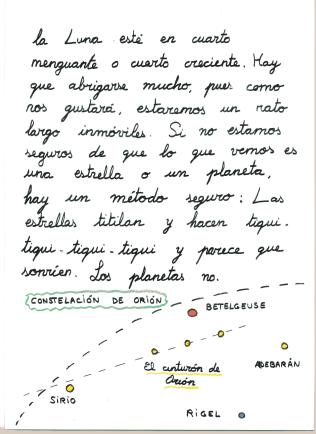 la Luna esté en cuarto
menguante o cuarto creciente. Hay
que abrigarse mucho, pues como
nos gustará, estaremos un rato
largo inmóviles. Si no estamos
seguros de que lo que vemos es
una estrella o un planeta,
hay un método seguro: Las
estrellas titilan y hacen tiqui-
tiqui-tiqui-tiqui y parece que
sonríen. Los planetas no.
CONSTELACIÓN DE ORIÓN
BETELGEUSE
El cinturón de
Orión
ADEBARÁN
SIRIO
RIGEL